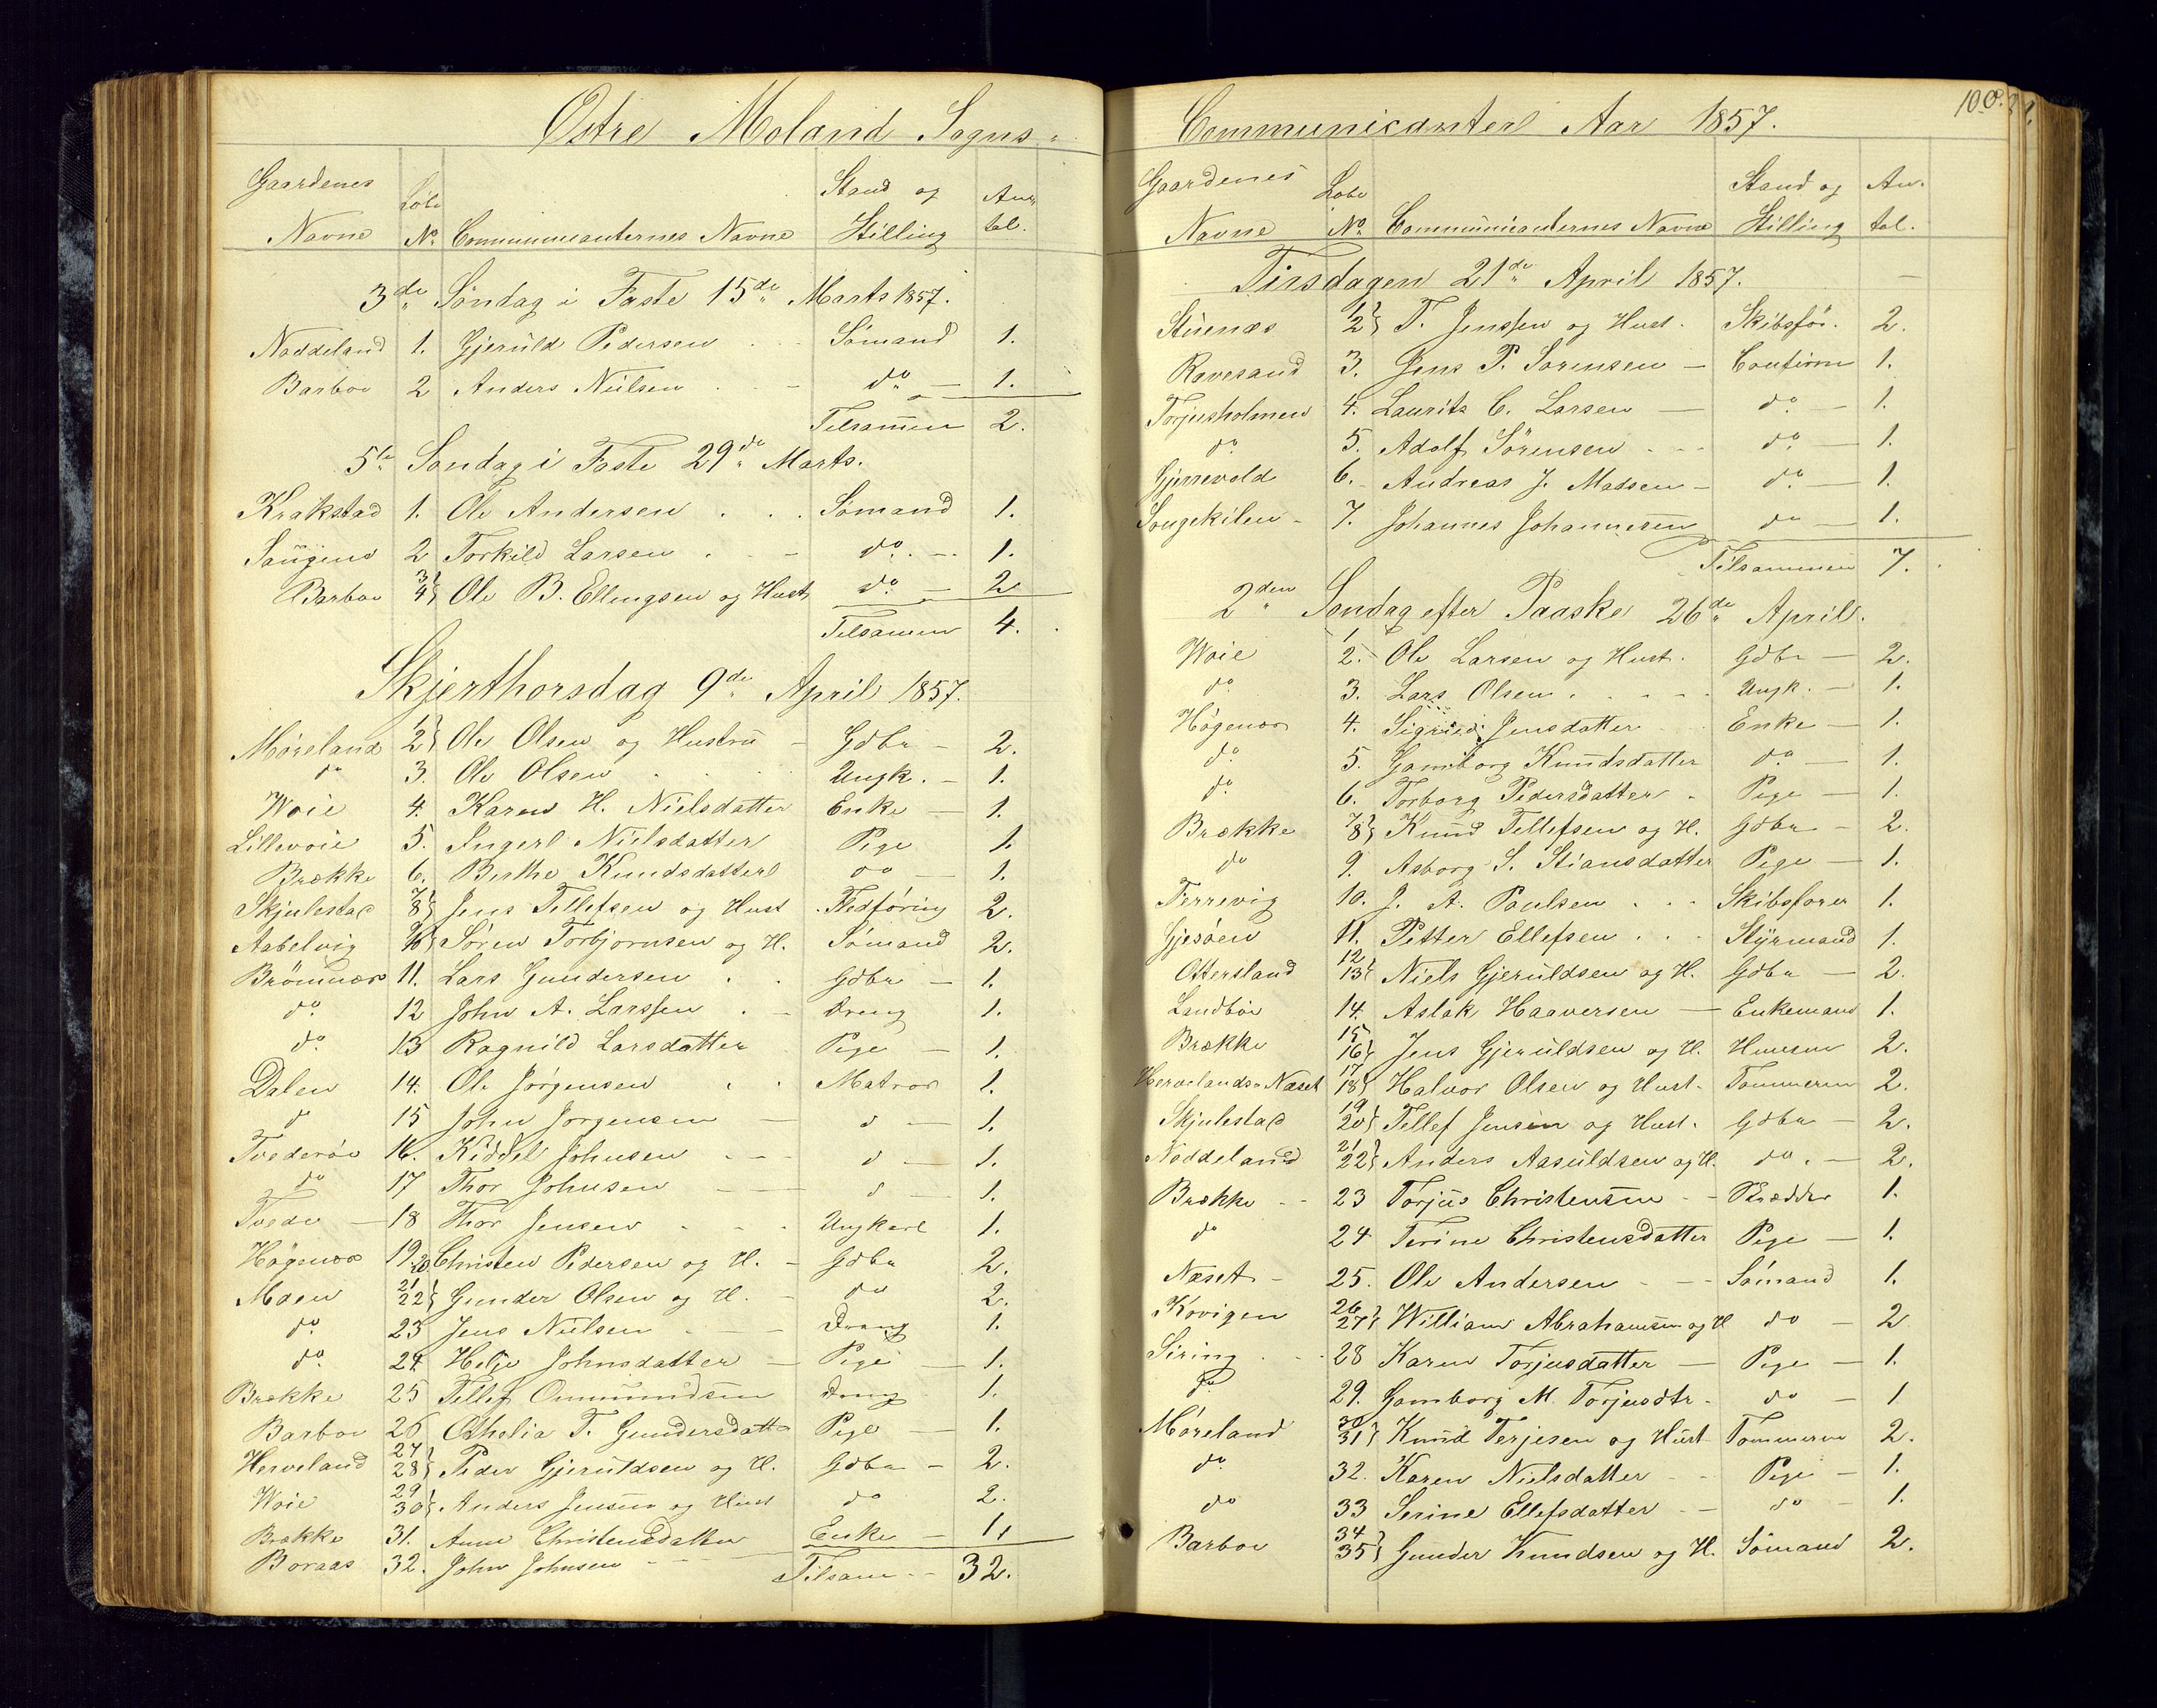 Østre Molands Sogns
Gaardenes Navne Löbe No. Communicanternes Navne Stand og Stilling Antal.
3de Søndag i Faste 15de Marts 1857.
Noddeland 1. Gjeruld Pedersen Sömand 1.
Barboe 2 Anders Nielsen do 1.
Tilsammen 2.
5te Søndag i Faste 29de Marts.
Krakstad 1. Ole Andersen Sømand 1.
Saugene 2 Torkild Larsen do. 1.
Barboe 3 4 Ole B. Ellingsen og Hust do. 2
Tilsamen 4.
Skjerthorsdag 9de April 1857.
Møreland 1 2 Ole Olsen og Hustru Gdbr 2.
do 3. Ole Olsen Ungk. 1.
Woie 4. Karen H. Nielsdatter Enke 1.
Lillevoie 5. Ingerl Nielsdatter Pige 1.
Brække 6. Berthe Knudsdatter do 1.
Skjulestad 7 8 Jens Tellefsen og Hust Fledføring 2.
Aabelvig 9 10 Søren Torbjørnsen og H. Sømand 2.
Brömnæs 11. Lars Gundersen Gdbr 1.
do. 12 John A. Larssen Dreng 1.
do. 13 Ragnild Larsdatter Pige 1.
Dalen 14. Ole Jørgensen Matros 1.
do 15 John Jørgensen d 1.
Tvederøe 16. Kiddel Johnsen d 1.
do 17 Thor Johnsen d 1.
Tvede 18 Thor Jensen Ungkarl 1.
Høgenæs 19 20. Christen Pedersen og H. Gdbr 2.
Moen 21 22 Gunder Olsen og H. do 2.
do. 23 Jens Nielsen Dreng 1.
do. 24. Helje Johnsdatter Pige 1.
Brække 25 Tellef Ommundsen Dreng 1.
Barboe 26 Othelia T. Gundersdatt Pige 1.
Herveland 27 28 Peder Gjeruldsen og H. Gdbr 2.
Woie 29 30 Anders Jensen og Hust do 2.
Brække 31. Anne Christensdatter Enke 1.
Boraas 32. John Johnsen
Tilsam 32.
100.
Communicanter Aar 1857.
Gaardenes Navne Løbe No. Communicanternes Navne Stand og Stilling Antal.
Tirsdagen 21de April 1857.
Stuenæs 1 2 T. Jenssen og Hust. Skibsför. 2.
Ravesand 3. Jens P. Sørensen Confirm 1.
Torjusholmen 4. Laurits C. Larsen do. 1.
do. 5. Adolf Sörensen do. 1.
Gjerrevold 6. Andreas J. Madsen do. 1.
Songekilen 7. Johannes Johannesen do 1.
Tilsammen 7.
2den Søndag efter Paaske 26de April.
Woie 1 2. Ole Larsen og Hust. Gdbr 2.
do. 3. Lars Olsen Ungk. 1.
Høgenæs 4. Sigrid Jensdatter Enke 1.
do. 5. Gamborg Knudsdatter do. 1.
do. 6. Torborg Pedersdatter Pige 1.
Brække 7 8 Knud Tellefsen og H. Gdbr 2.
do 9. Asborg S. Stiansdatter Pige 1.
Ferrevig 10. J. A. Paulsen Skibsfører 1.
Gjesöen 11. Petter Ellefsen Styrmand 1.
Ottersland 12 13 Niels Gjeruldsen og H. Gdbr 2.
Landböe 14. Aslak Haaversen Enkemand 1.
Brække 15 16 Jens Gjeruldsen og H. Huusm 2.
Hervelands-Næset 17 18 Halvor Olsen og Hust. Tømmerm 2.
Skjulestad 19 20 Tellef Jensen og Hust. Gdbr 2.
Noddeland 21 22 Anders Aasuldsen og H. do. 2.
Brække 23 Torjus Christensen 1.
do 24 Terine Christensdatter Pige 1.
Næset 25. Ole Andersen Sømand 1.
Kovigen 26 27 William Abrahamsen og H do 2
Siring 28 Karen Torjusdatter Pige 1.
do. 29. Gamborg M. Torjusdtr. do 1
Møreland 30 31 Knud Terjesen og Hust Tømmerm 2.
do. 32. Karen Nielsdatter Pige 1.
do 33 Serine Ellefsdatter do 1.
Barboe 34 35 Gunder Knudsen og H. Sömand 2.